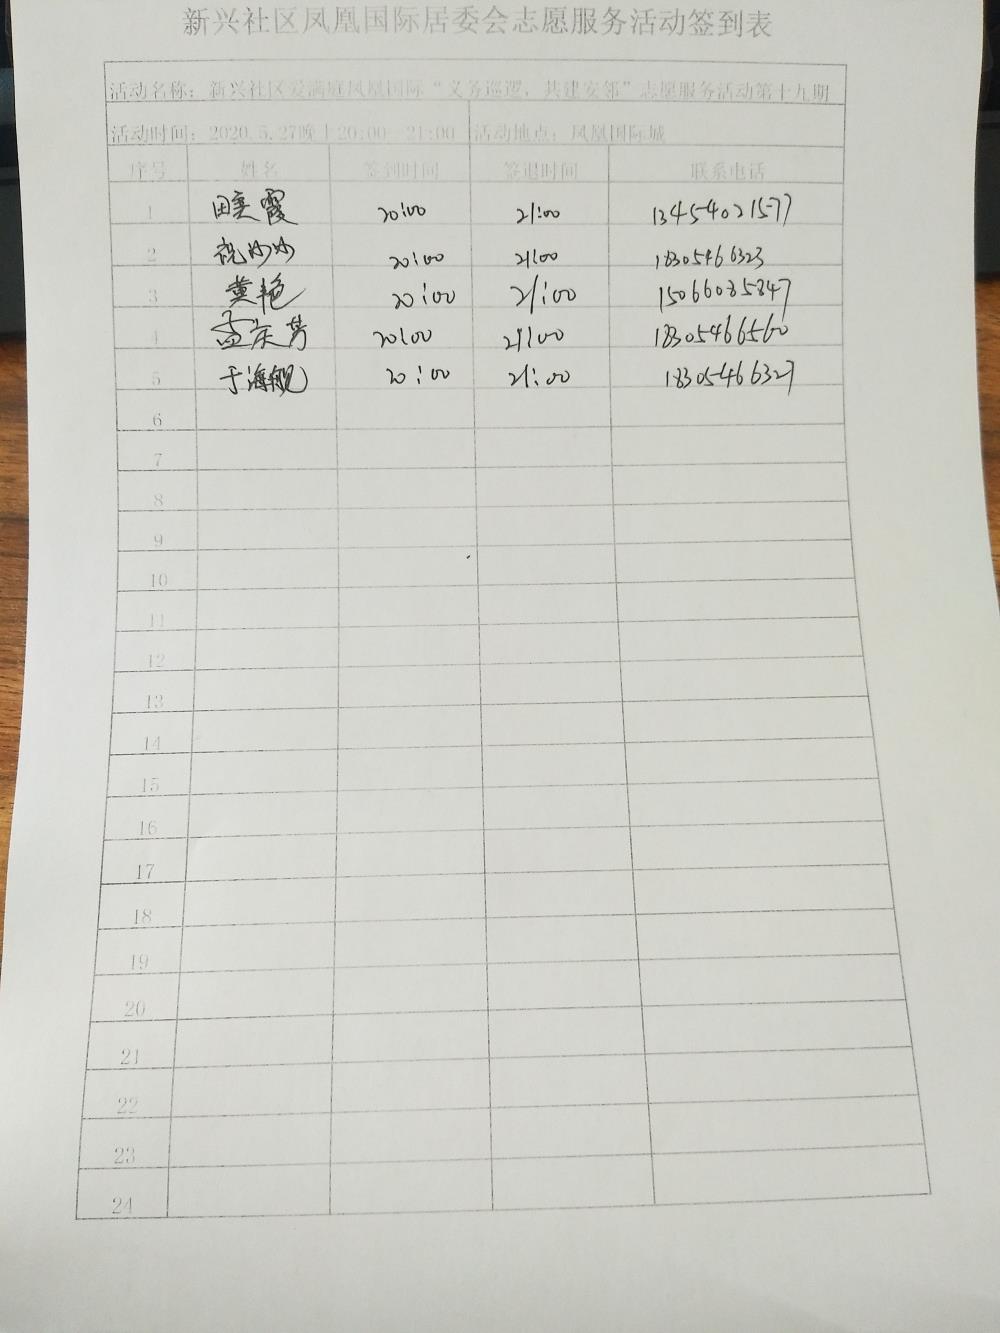 新兴社区凤凰国际居委会志愿服务活动签到表
活动名称：新兴社区爱满庭凤凰国际“义务巡逻，共建安邻”志愿服务活动第十九期
活动时间：2020.5.27晚上20:00—21:00 活动地点：凤凰国际城
序号 姓名 签到时间 签退时间 联系电话
1 田奕霞 20:00 21:00 13454021577
2 祝沙沙 20:00 21:00 18305466323
3 冀艳 20:00 21:00 15066085847
4 孟庆芳 20:00 21:00 18305466560
5 于海舰 20:00 21:00 18305466327
6
7
8
9
10
11
12
13
14
15
16
17
18
19
20
21
22
23
24